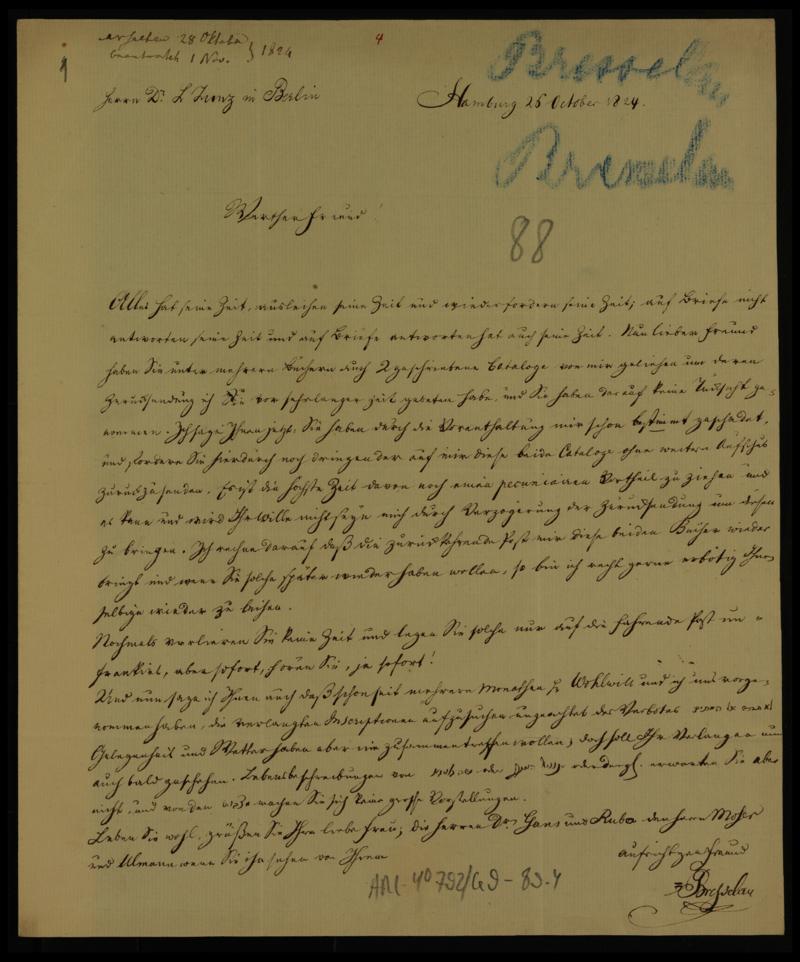 erhalten 28 Oktober
beantwortet 1 Nov. } 1824
4
Bresselau
Herrn Dr. L Zunz in Berlin
Hamburg 26 October 1824.
Bresselau
Werther Freund!
88
Alles hat seine Zeit, ausleihen seine Zeit und wiederfordern seine Zeit; auf Briefe nicht
antworten seine Zeit und auf Briefe antworten hat auch seine Zeit. Nun lieber Freund
haben Sie unter mehrern Büchern auch 2 geschriebene Cataloge von mir geliehen um deren
Zurücksendung ich Sie vor sehr langer Zeit gebeten habe, und Sie haben darauf keine Rücksicht ge-
nommen. Ich sage Ihnen jetzt: Sie haben durch die Vorenthaltung mir schon bestimmt geschadet,
und fordere Sie hierdurch noch dringender auf mir diese beide Cataloge ohne weitern Aufschub
zurückzusenden. Es ist die höchste Zeit davon noch einen pecuniairen Vortheil zu ziehen und
es kann und wird Ihr Wille nicht seyn mich durch Verzögerung der Zurücksendung um diesen
zu bringen. Ich rechne darauf daß die zurückkehrende Post mir diese beiden Bücher wieder
bringt und wenn Sie solche später wieder haben wollen, so bin ich recht gerne erbötig Ihnen
selbige wieder zu leihen.
Nochmals verlieren Sie keine Zeit und legen Sie solche nur auf die fahrende Post un-
frankirt, aber sofort, hören Sie, ja sofort!
Und nun sage ich Ihnen auch daß schon seit mehrern Monathen H Wohlwill und ich uns vorge-
nommen haben, die verlangten Inscriptionen aufzusuchen ungeachtet des Verbotes
Gelegenheit und Wetter haben aber nie zusammentreffen wollen; doch soll Ihr Verlangen nun
auch bald geschehen. Lebensbeschreibungen von oder oder dergl. erwarten Sie aber
nicht, und von den machen Sie sich keine große Vorstellungen.
Leben Sie wohl, grüßen Sie Ihre liebe Frau, die Herren Drs Gans und Rubo den Herrn Moser
und Ulmann wenn Sie ihn sehen von Ihrem
aufrichtigen Freund
Bresselau
ARC 4° 792/G9-83.4